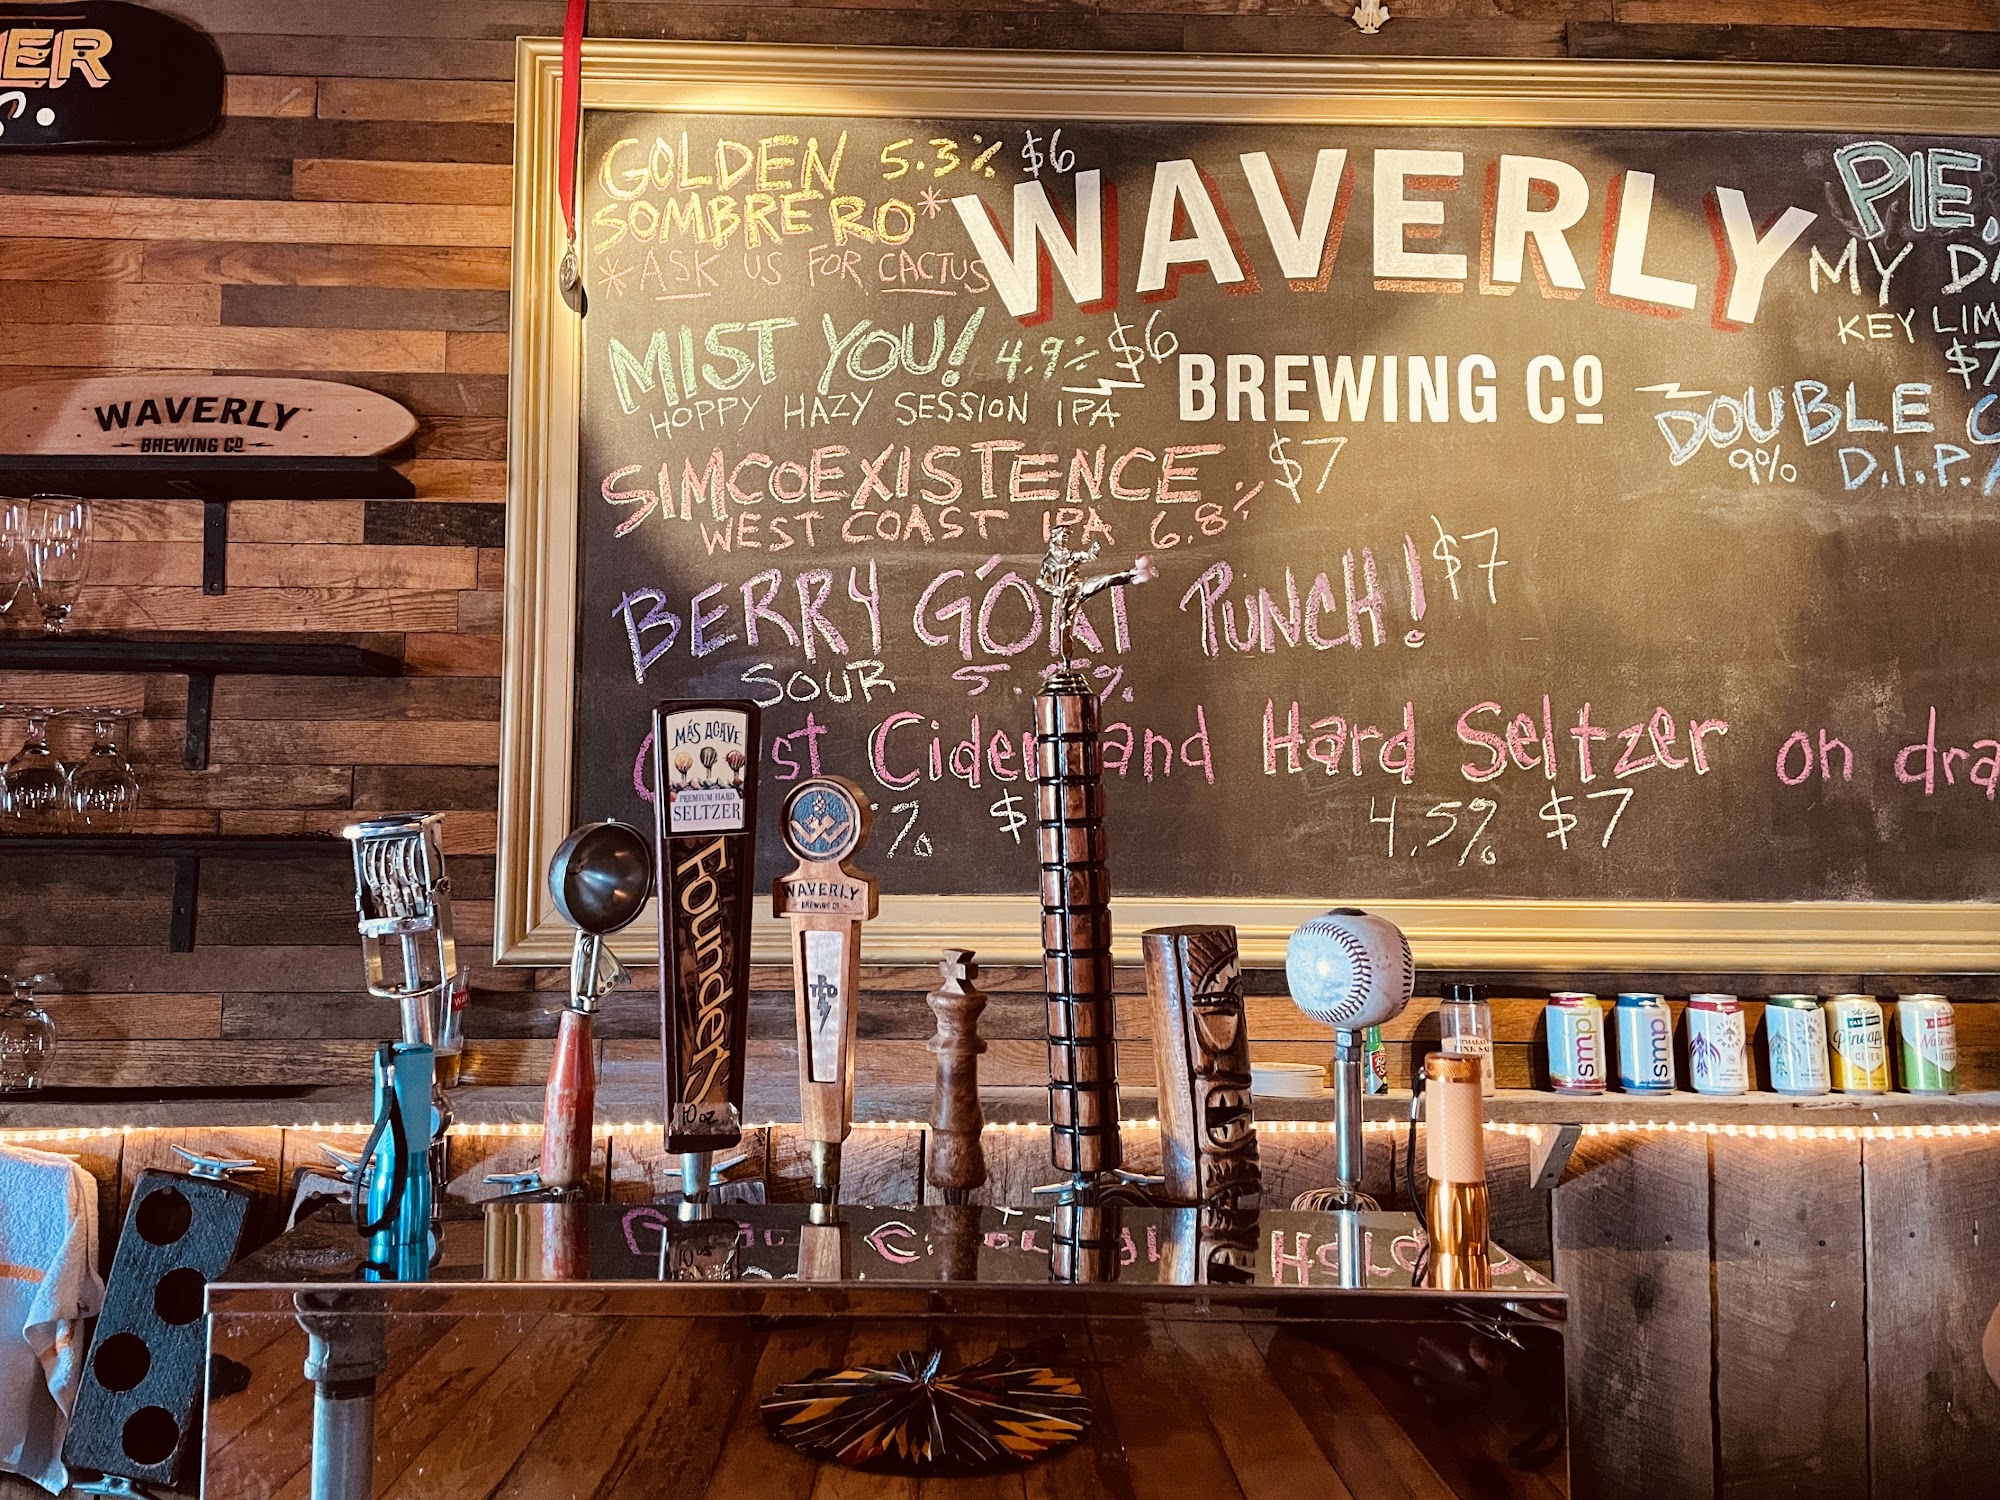 ER
S.
WAVERLY
BREWING Cº
GOLDEN 5.3% $6
SOMBRERO*
*ASK US FOR CACTUS
MIST YOU! 4.9% $6
HOPPY HAZY SESSION IPA
SIMCOEXISTENCE $7
WEST COAST IPA 6.8%
BERRY GOAT PUNCH! $7
SOUR
WAVERLY
BREWING Cº
PIE,
MY
KEY LIM
$7
DOUBLE
9% D.I.P.A
Cider and Hard Seltzer on dra
% $ 4.5% $7
MÁS AGAVE
PREMIUM HARD
SELTZER
Founders
10 oz
WAVERLY
BREWING Cº
TPD
PINK
smpl
smp
Pineapp
CIDER